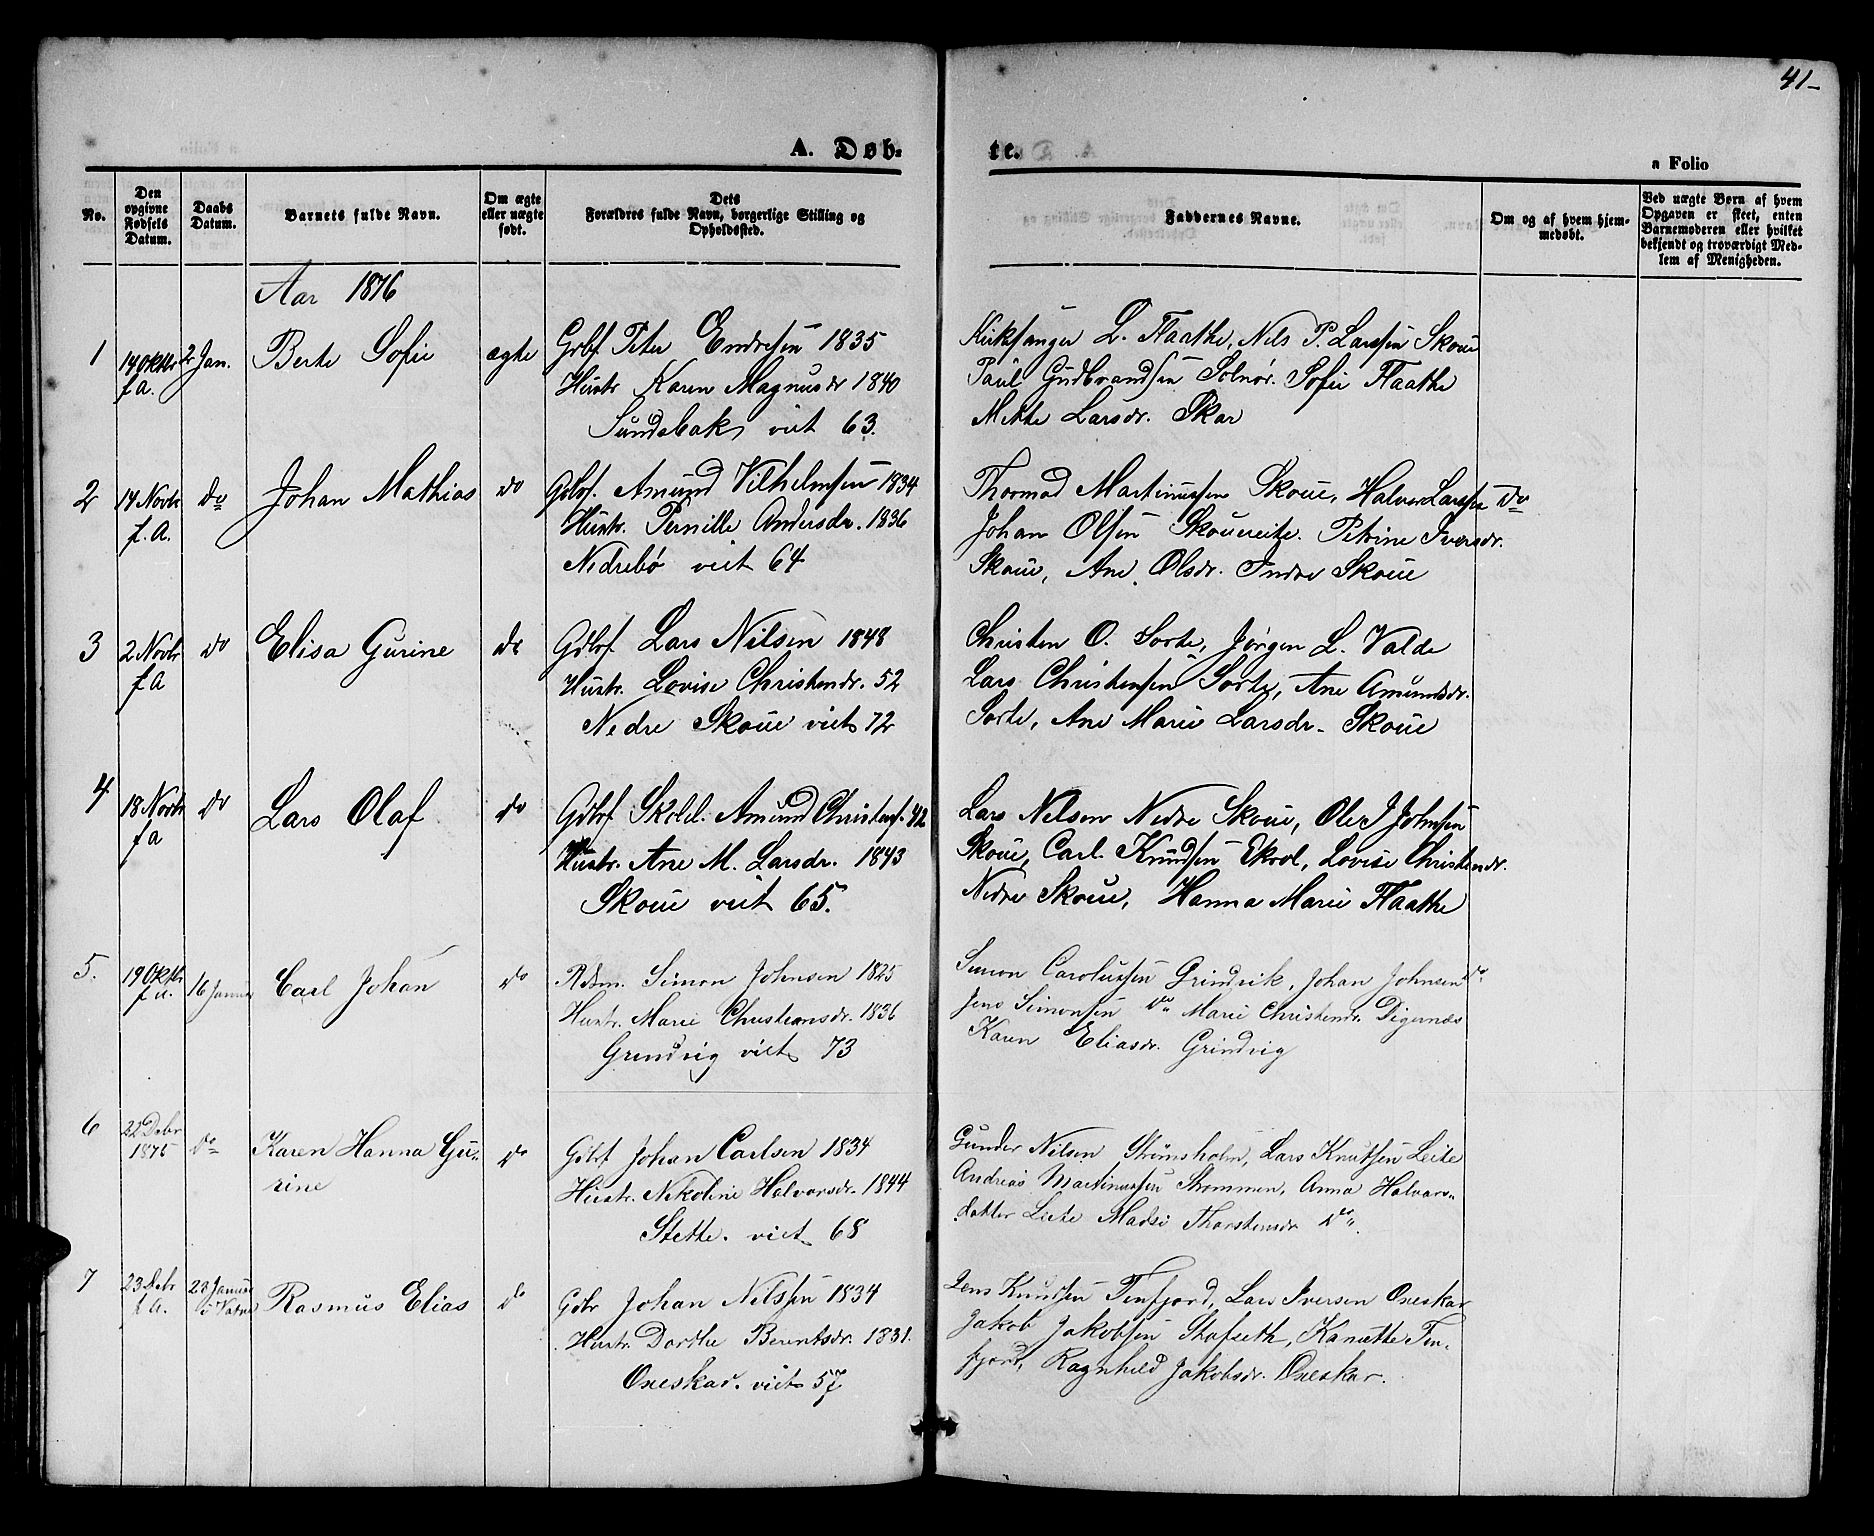 41-
A. Døb-
te.
a Folio
No.
Den opgivne Fødsels Datum.
Daabs Datum.
Barnets fulde Navn.
Om ægte eller uægte født.
Dets Forældres fulde Navn, borgerlige Stilling og Opholdssted.
Faddernes Navne.
Om og af hvem hjemmedøbt.
Ved uægte Børn af hvem Opgaven er skeet, enten Barnemoderen eller hvilket bekjendt og troværdigt Medlem af Menigheden.
Aar 1876
1 14 Oktbr f.A. 2 Jan. Berte Sofie ægte
Grbf Peter Endresen 1835
Hustr Karen Magnusdr 1840
Sundsbak viet 63.
Kirksanger L. Flaathe, Nils P. Larssen Skoue
Paul Gudbrandsen Solnør. Sofie Flaathe
Mette Larsdr. Skar
2 14 Novbr f.A. do Johan Mathias do
Gdbf. Amund Vilhelmsen 1834
Hustr. Pernille Andersdr. 1836
Nedrebø viet 64
Thormod Martinussen Skoue, Halvor Larssen do
Johan Olsen Skouereite. Petrine Iversdr.
Skoue, Ane Olsdr. Indre Skoue
3 2 Novbr f.A do Elisa Gurine do
Gdbf. Lars Nilsen 1848
Hustr. Lovise Christendr. 52
Nedre Skoue viet 72
Christen O. Sorte, Jørgen L. Valde
Lars Christensen Sorte, Ane Amundsdr.
Sorte, Ane Marie Larsdr. Skoue
4 18 Novbr f a do Lars Olaf do
Gdbf Skoleh. Amund Christens. 42
Hustr. Ane M. Larsdr. 1843
Skoue viet 65.
Lars Nilsen Nedre Skoue, Ole J Johnsen
Skoue, Carl Knudsen Ekrol, Lovise Christendr.
Nedre Skoue, Hanna Marie Flaathe
5. 19 Oktbr f a. 16 Januar Carl Johan do
Rdm. Simon Johnsen 1825
Hustr. Marie Christensdr. 1836
Grindvig viet 73
Simon Carolussen Grindvik, Johan Johnsen do
Jens Simonsen do Marie Christendr. Digernæs
Karen Eliasdr. Grindvig
6 22 Debr 1875 do Karen Hanna Gu-
rine do
Gdbf Johan Carlsen 1834
Hustr. Nikoline Halvorsdr. 1844
Stette. viet 68
Gunder Nilsen Strømsholm, Lars Knutsen Leite
Andreas Martinussen Strømmen, Anna Halvors-
datter Leite Madsi Thorstensdr do.
7 23 Debr f.A. 23 Januar i Vatne Rasmus Elias do
Gdbr Johan Nilssen 1834
Hustr. Dorthe Berentsdr. 1831.
Oneskar. viet 57
Jens Knudsen Tenfjord, Lars Iversen Oneskar
Jakob Jakobsen Stafseth, Kanutte Ten-
fjord, Ragnhild Jakobsdr. Oneskar.